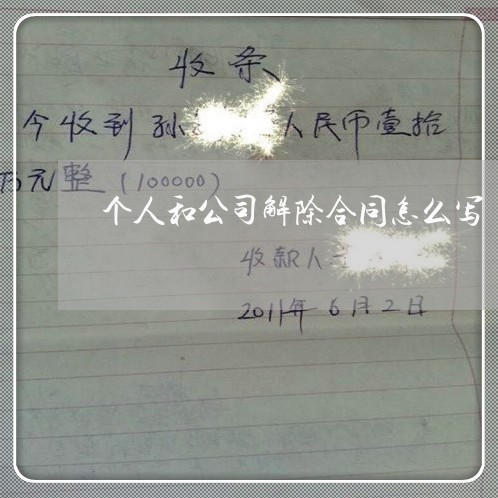 收条
今收到孙 人民币壹拾
万元整（100000）
个人和公司解除合同怎么写
收款人
2011年6月2日